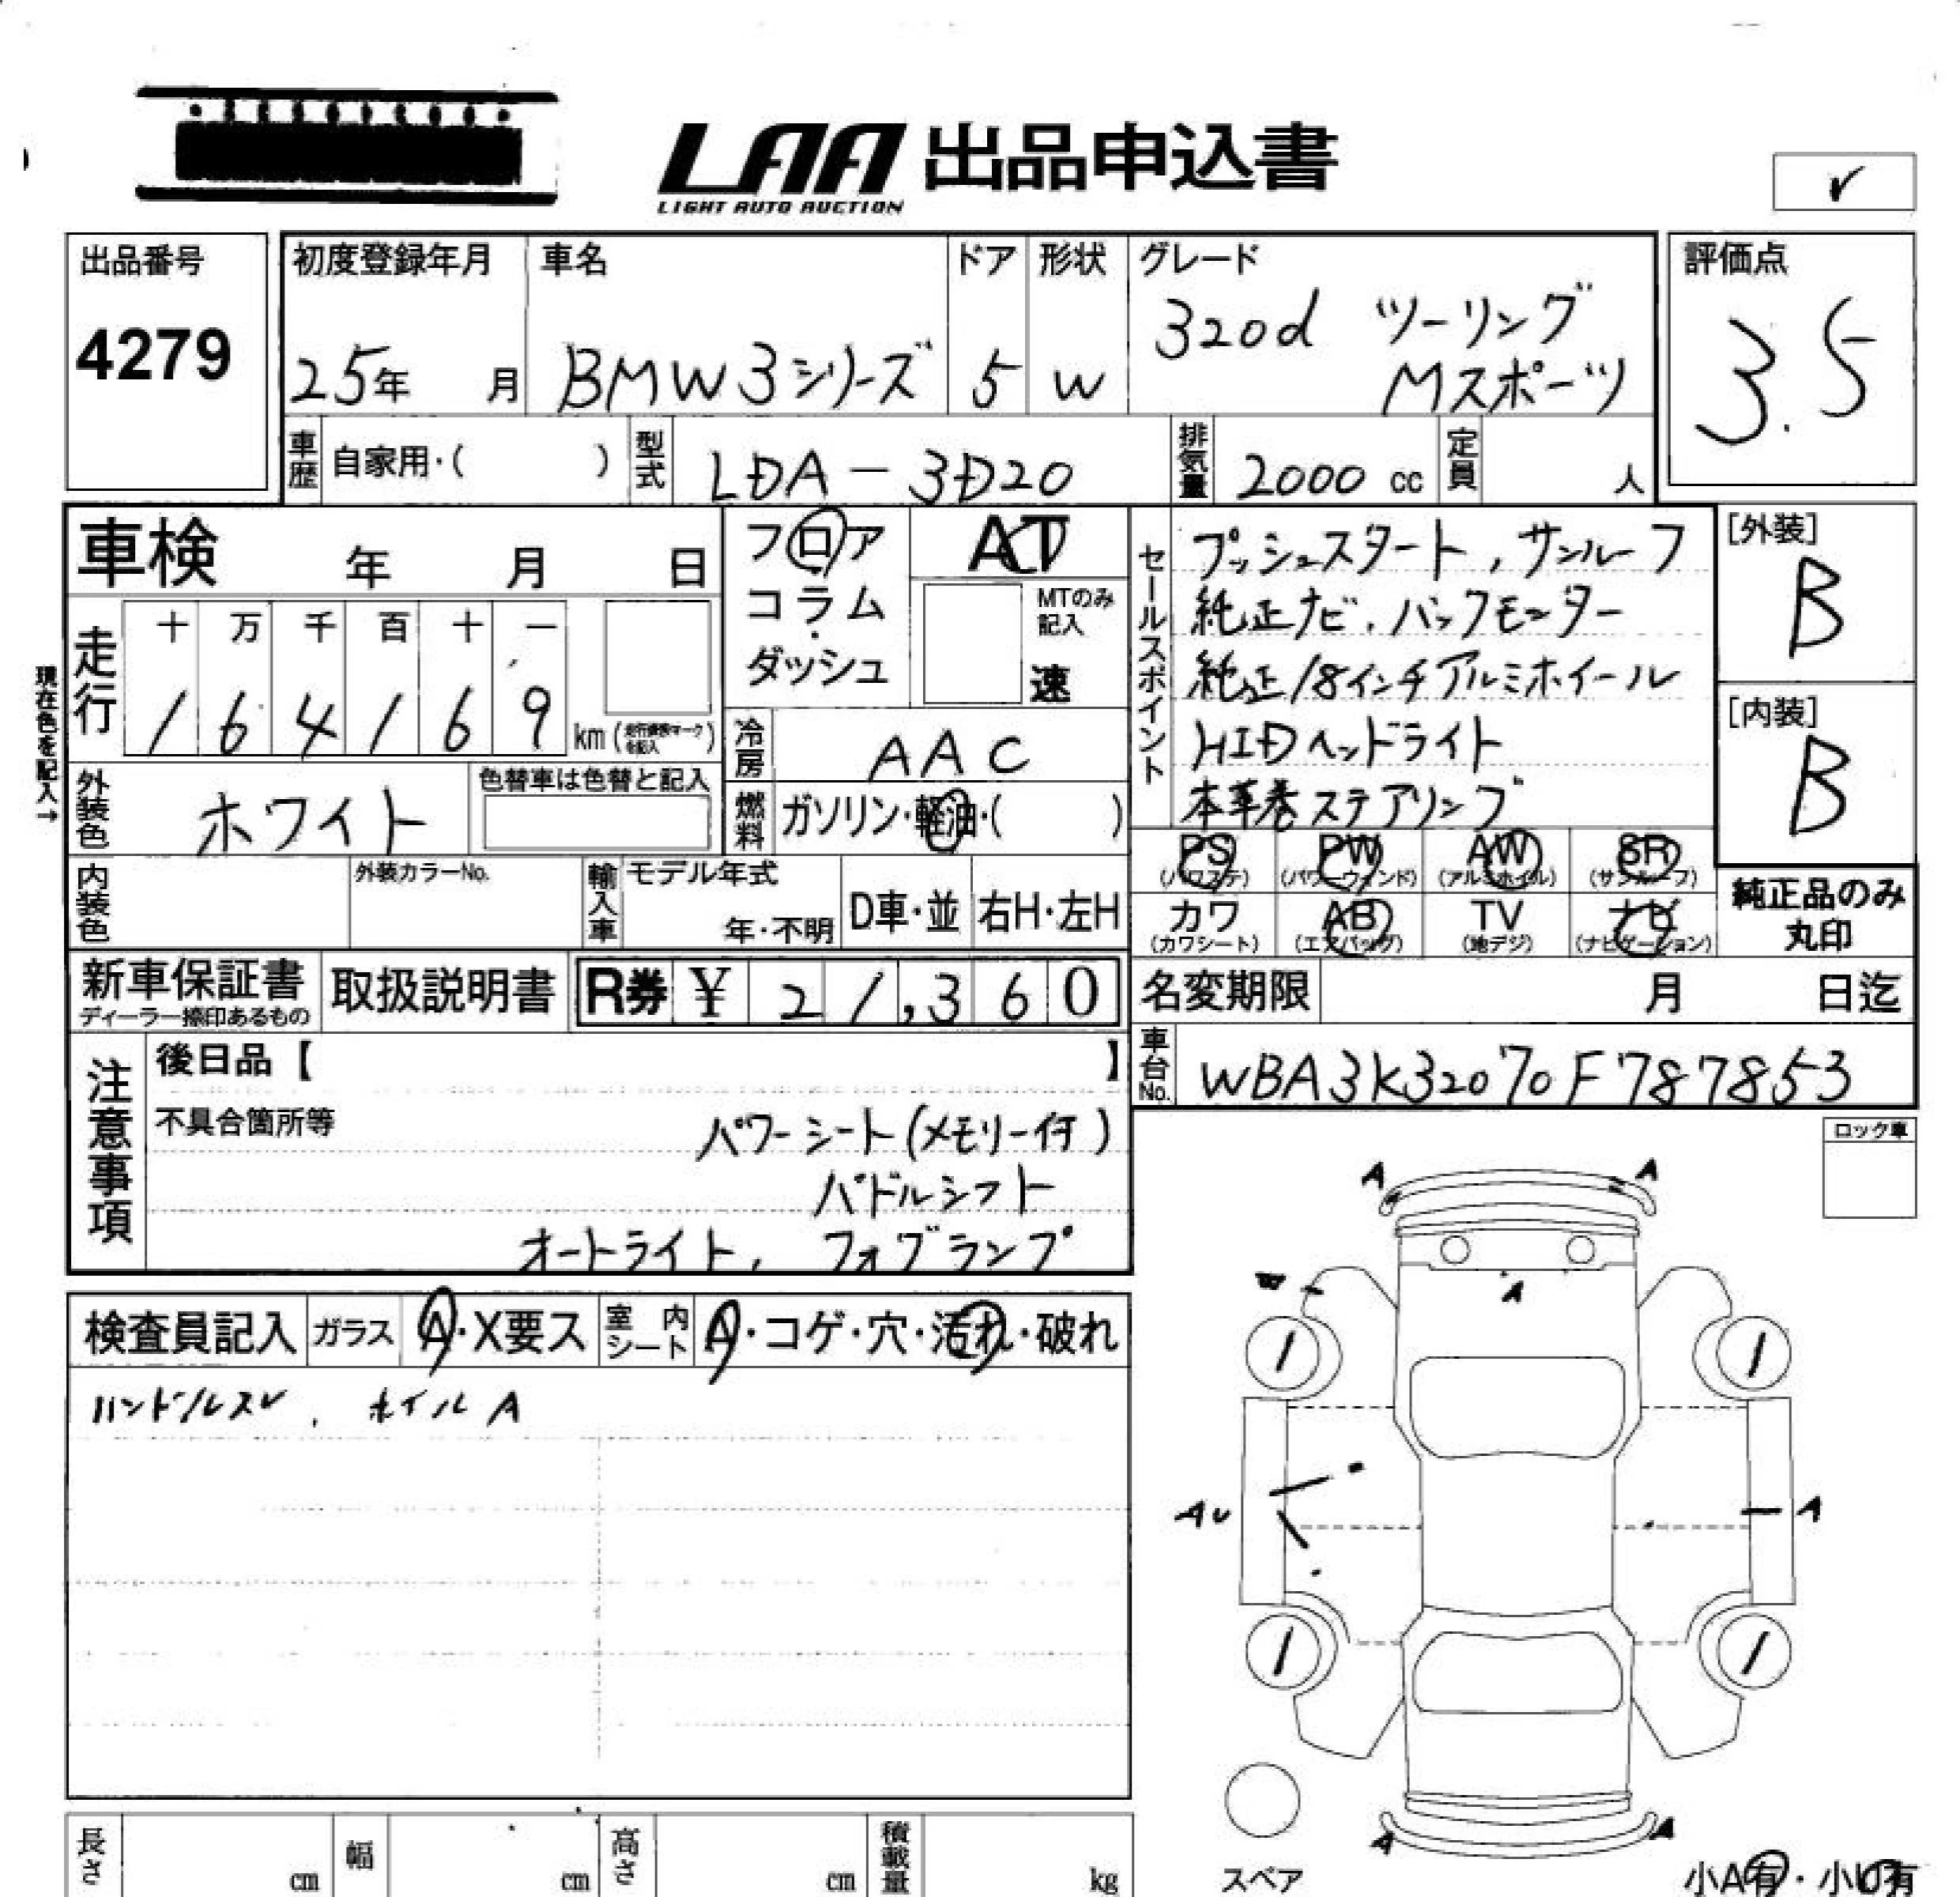 LAA 出品申込書
LIGHT AUTO AUCTION
出品番号
4279
初度登録年月
25年 月
車名
BMW3シリーズ
ドア
5
形状
W
グレード
320d ツーリング
Mスポーツ
評価点
3.5
車歴 自家用・( )
型式 LDA-3D20
排気量 2000 cc
定員 人
車検 年 月 日
フロア
コラム
ダッシュ
AT
MTのみ
記入
速
セールスポイント
プッシュスタート,サンルーフ
純正ナビ,バックモニター
純正18インチアルミホイール
HIDヘッドライト
本革巻ステアリング
[外装]
B
[内装]
B
現在色を記入→
走行
十 万 千 百 十 一
1 6 4 1 6 9 km
冷房 AAC
外装色 ホワイト
色替車は色替と記入
燃料 ガソリン・軽油・( )
内装色
外装カラーNo.
輸入車
モデル年式
年・不明
D車・並
右H・左H
PS (パワステ)
PW (パワーウィンド)
AW (アルミホイル)
SR (サンルーフ)
カワ (カワシート)
AB (エアバッグ)
TV (地デジ)
ナビ (ナビゲーション)
純正品のみ
丸印
新車保証書
ディーラー捺印あるもの
取扱説明書
R券 ¥ 21,360
名変期限 月 日迄
車台No. WBA3K32070F787853
注意事項
後日品【 】
不具合箇所等
パワーシート(メモリー付)
パドルシフト
オートライト, フォグランプ
ロック車
検査員記入
ガラス A・X要ス
室内シート A・コゲ・穴・汚れ・破れ
ハンドルスレ, ホイルA
A A
A
AU
A
A A
スペア
小A有・小U有
長さ cm
幅 cm
高さ cm
積載量 kg